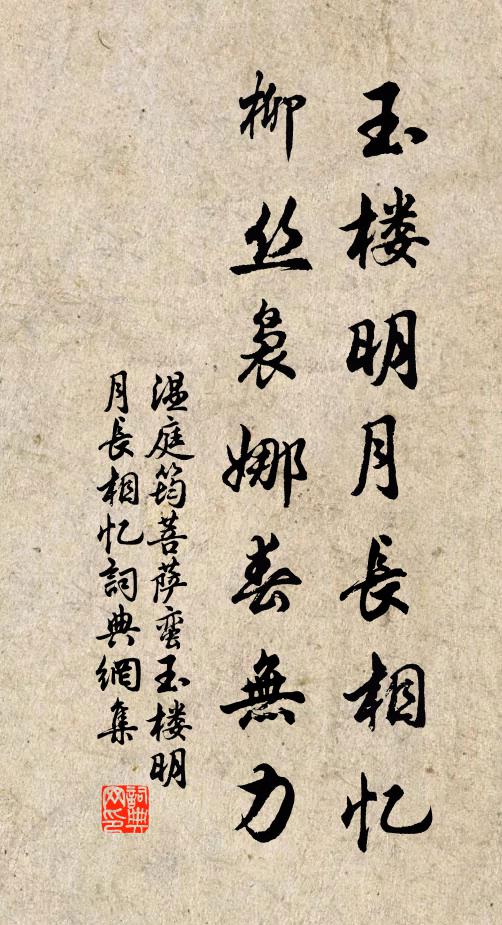 玉楼明月長相忆
柳丝袅娜春無力
温庭筠菩萨蛮玉楼明
月長相忆詞典網集
詞典
网印